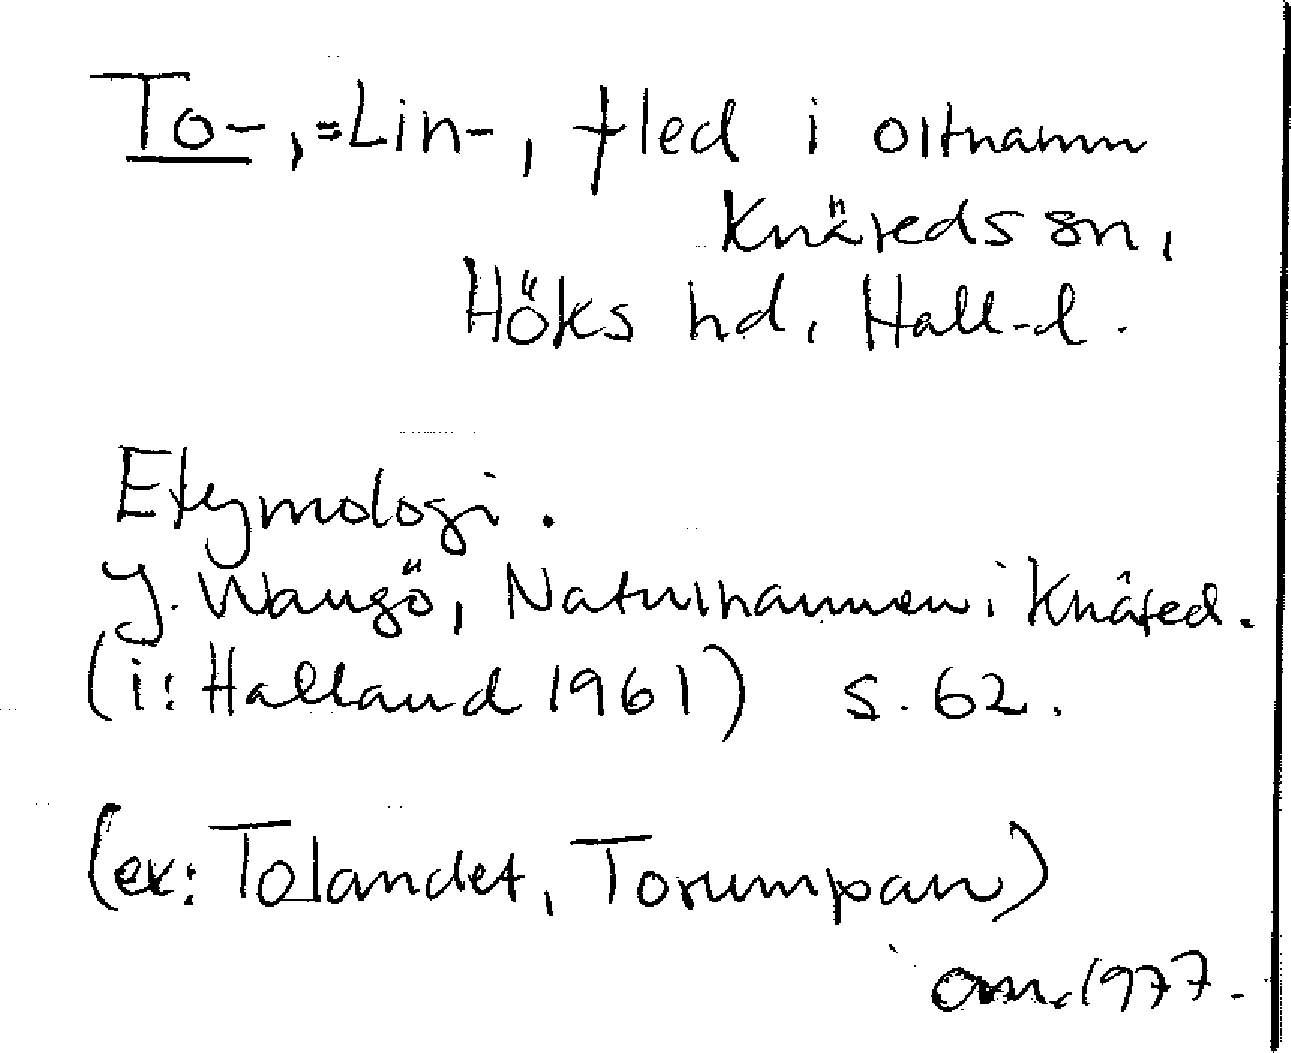 To-, =Lin-, fled i ortnamn
Knäreds sn,
Höks hd, Hall-d.
Etymologi.
J. Wangö, Naturnamnen i Knäred.
(i: Halland 1961) s. 62.
(ex: Tolandet, Torumpan)
1977.